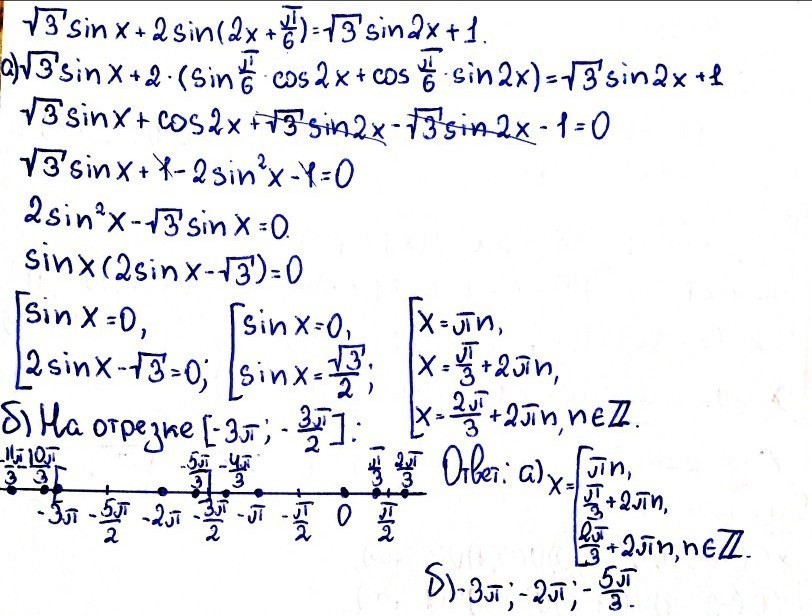 √3 sin x + 2 sin(2x + π/6) = √3 sin 2x + 1.
а) √3 sin x + 2 · (sin π/6 · cos 2x + cos π/6 · sin 2x) = √3 sin 2x + 1
√3 sin x + cos 2x + √3 sin 2x - √3 sin 2x - 1 = 0
√3 sin x + 1 - 2 sin²x - 1 = 0
2 sin²x - √3 sin x = 0.
sin x (2 sin x - √3) = 0
[ sin x = 0, [ sin x = 0, [ x = πn,
2 sin x - √3 = 0; sin x = √3/2; x = π/3 + 2πn,
x = 2π/3 + 2πn, n ∈ ℤ.
б) На отрезке [-3π; -3π/2]:
-11π/3 -10π/3 -5π/3 -4π/3 π/3 2π/3
-3π -5π/2 -2π -3π/2 -π -π/2 0 π/2
Ответ: а) x = [ πn,
π/3 + 2πn,
2π/3 + 2πn, n ∈ ℤ.
б) -3π; -2π; -5π/3.